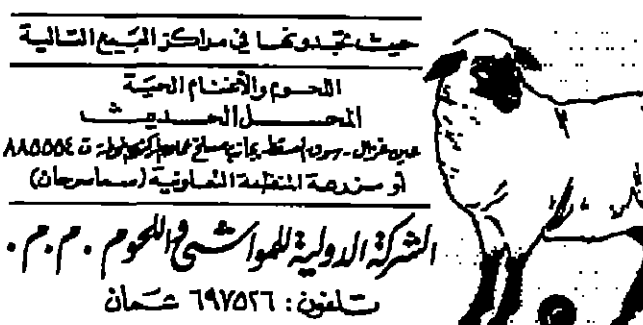 حيث تجدونها في مراكز البيع التالية
اللحوم والأغنام الحية
المحل الحديث
عين غزال - سوق ت ٨٨٥٥٥٤
أو مزرعة المنظمة التعاونية (سما سرحان)
الشركة الدولية للمواشي واللحوم . م . م .
تلفون : ٦٩٧٥٢٦ عمان